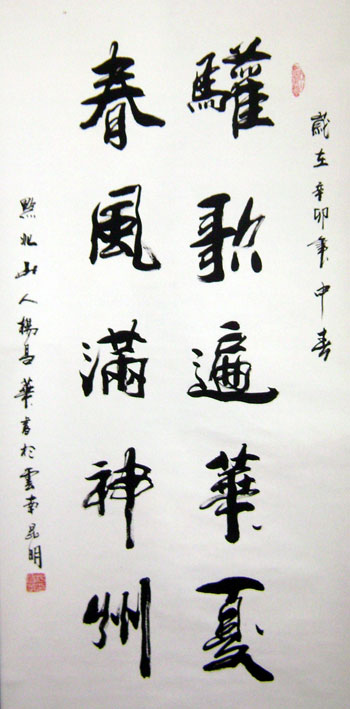 歲在辛卯年中春
驩歌遍華夏
春風滿神州
黔北山人楊昌華書於雲南昆明